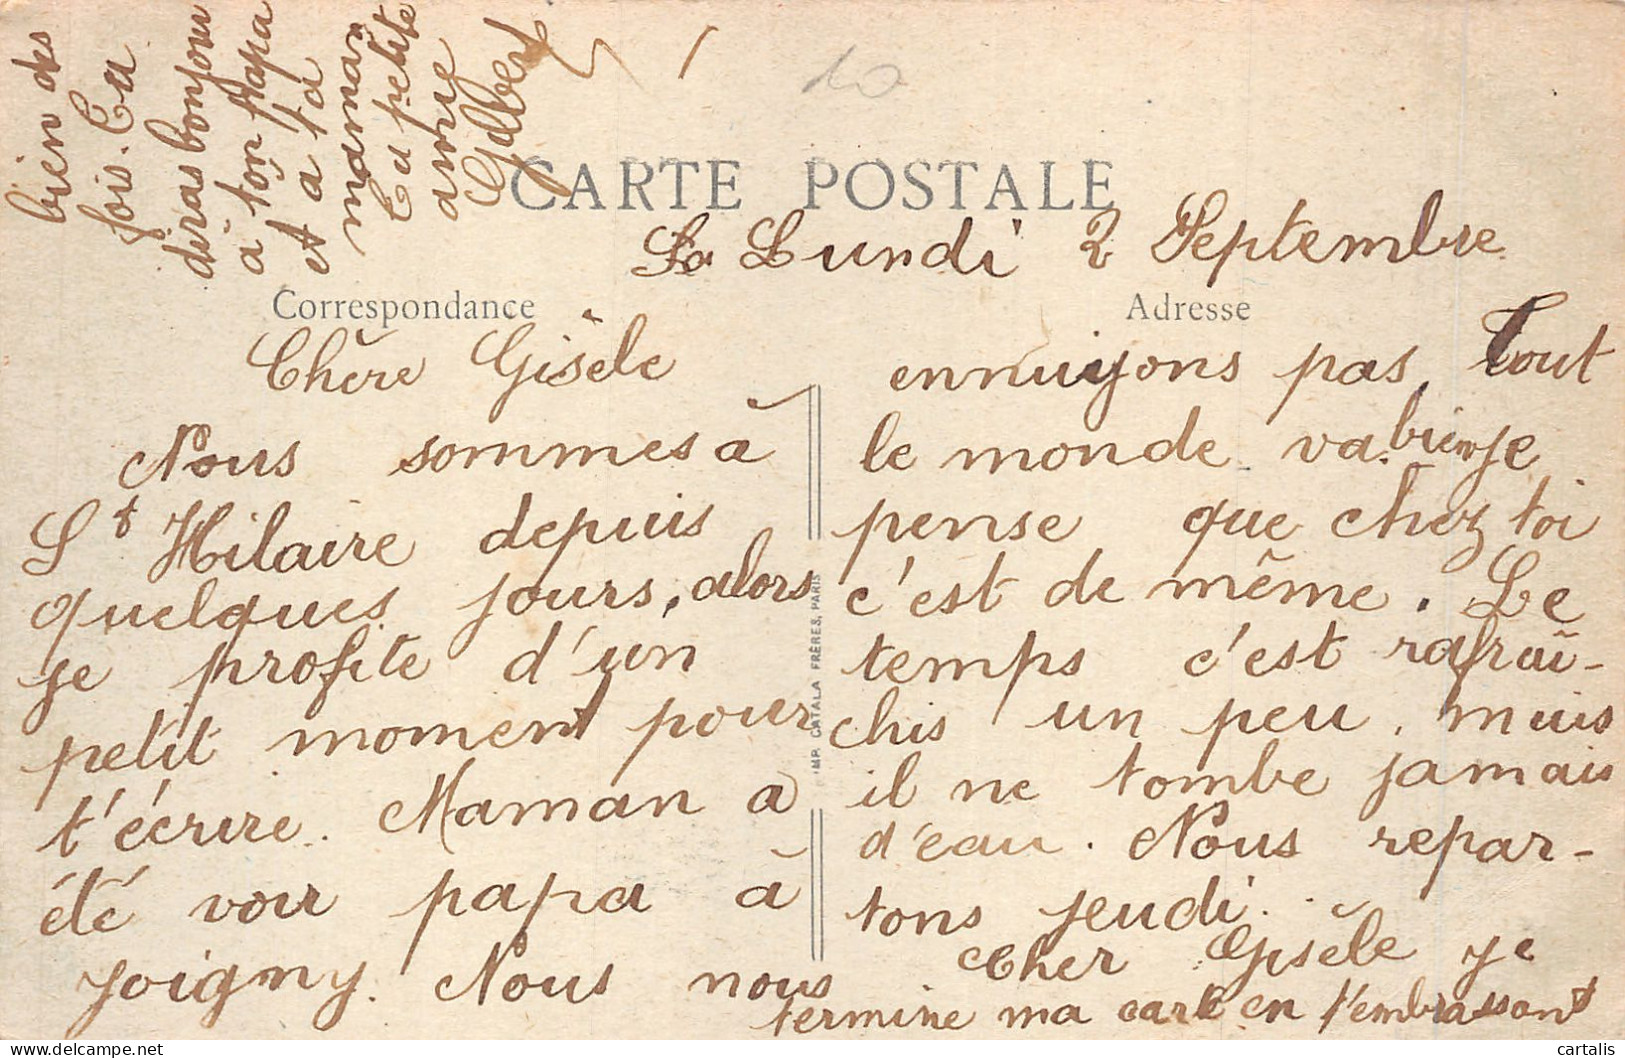 CARTE POSTALE
Le Lundi 2 Septembre
Correspondance
Adresse
Chère Gisèle
Nous sommes à
St Hilaire depuis
quelques jours, alors
je profite d'un
petit moment pour
t'écrire. Maman a
été voir papa à
Joigny. Nous nous
ennuiyons pas, tout
le monde va bien je
pense que chez toi
c'est de même. Le
temps c'est rafraî-
chis un peu, mais
il ne tombe jamais
d'eau. Nous repar-
tons jeudi.
Cher Gisèle je
termine ma carte en t'embrassant
bien des
fois. Tu
diras bonjour
à ton papa
et a ta
maman
Ta petite
amie
IMP. CATALA FRÈRES, PARIS
10
cartalis